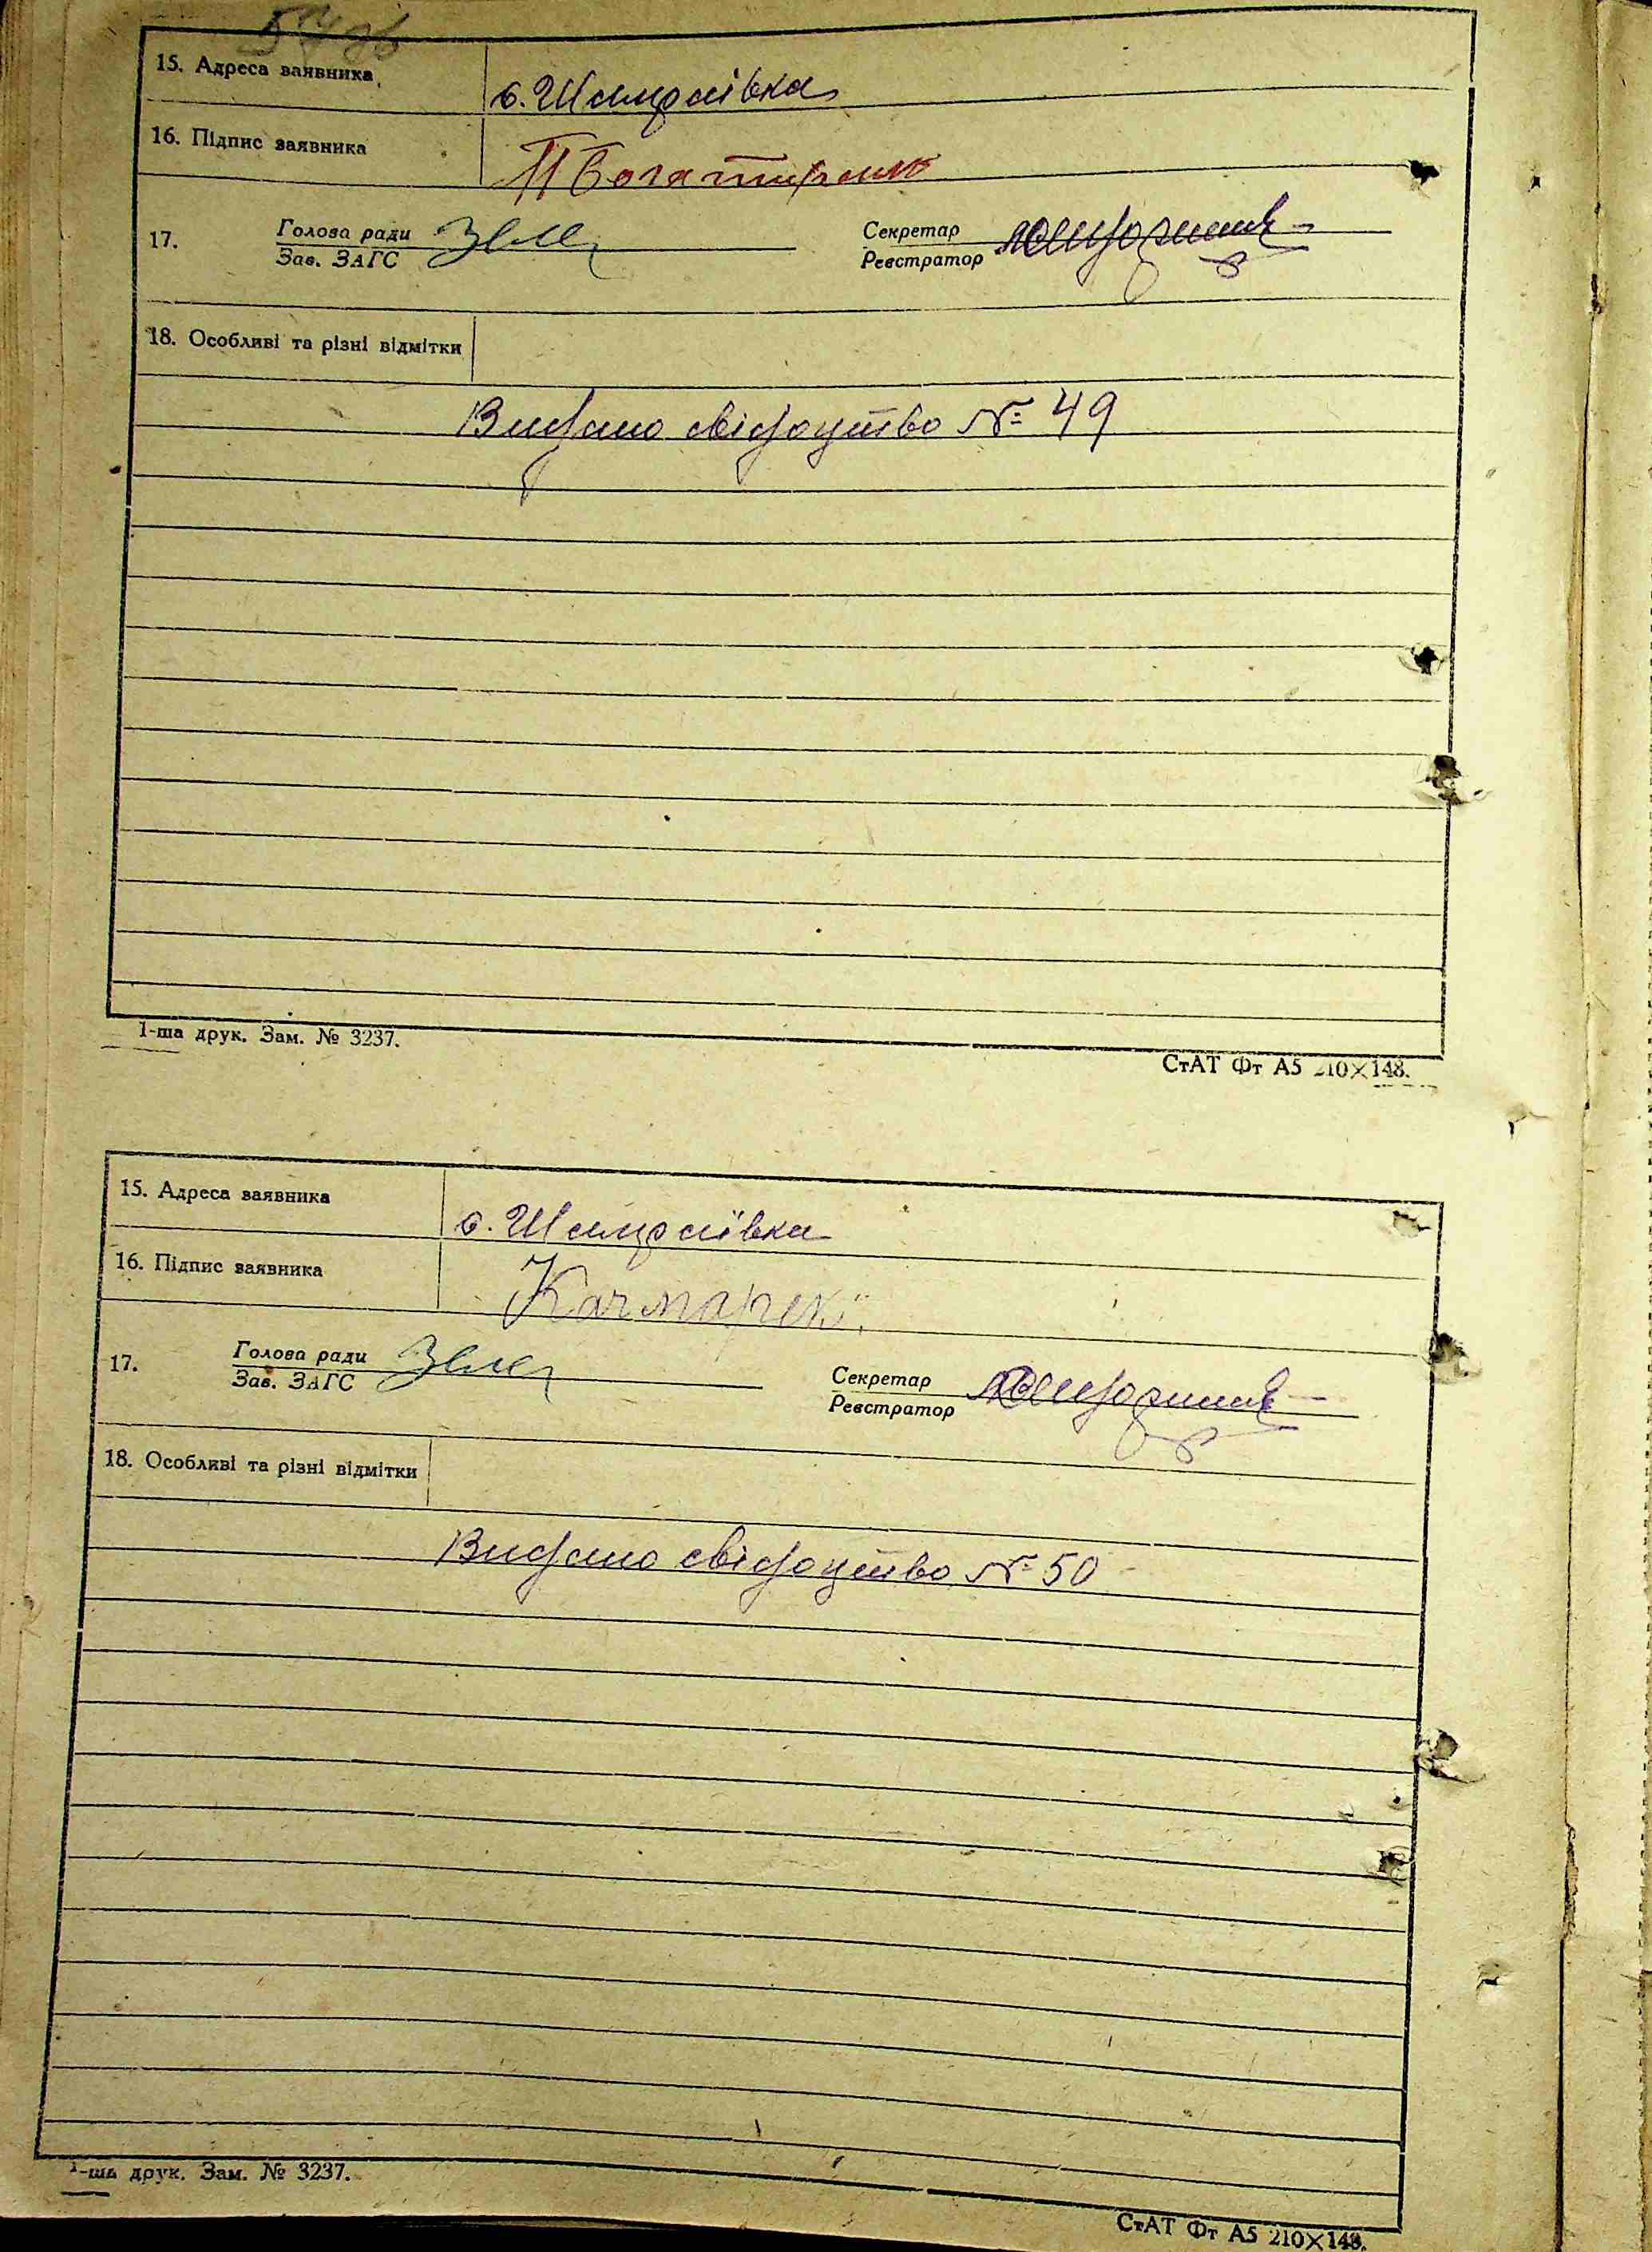 15. Адреса заявника
с. Шамраївка
16. Підпис заявника
17. Голова ради
Зав. ЗАГС
Секретар
Реєстратор
18. Особливі та різні відмітки
Видано свідоцтво № 49
1-ша друк. Зам. № 3237.
СтАТ Фт А5 210×148.
15. Адреса заявника
с. Шамраївка
16. Підпис заявника
17. Голова ради
Зав. ЗАГС
Секретар
Реєстратор
18. Особливі та різні відмітки
Видано свідоцтво № 50
1-ша друк. Зам. № 3237.
СтАТ Фт А5 210×148.